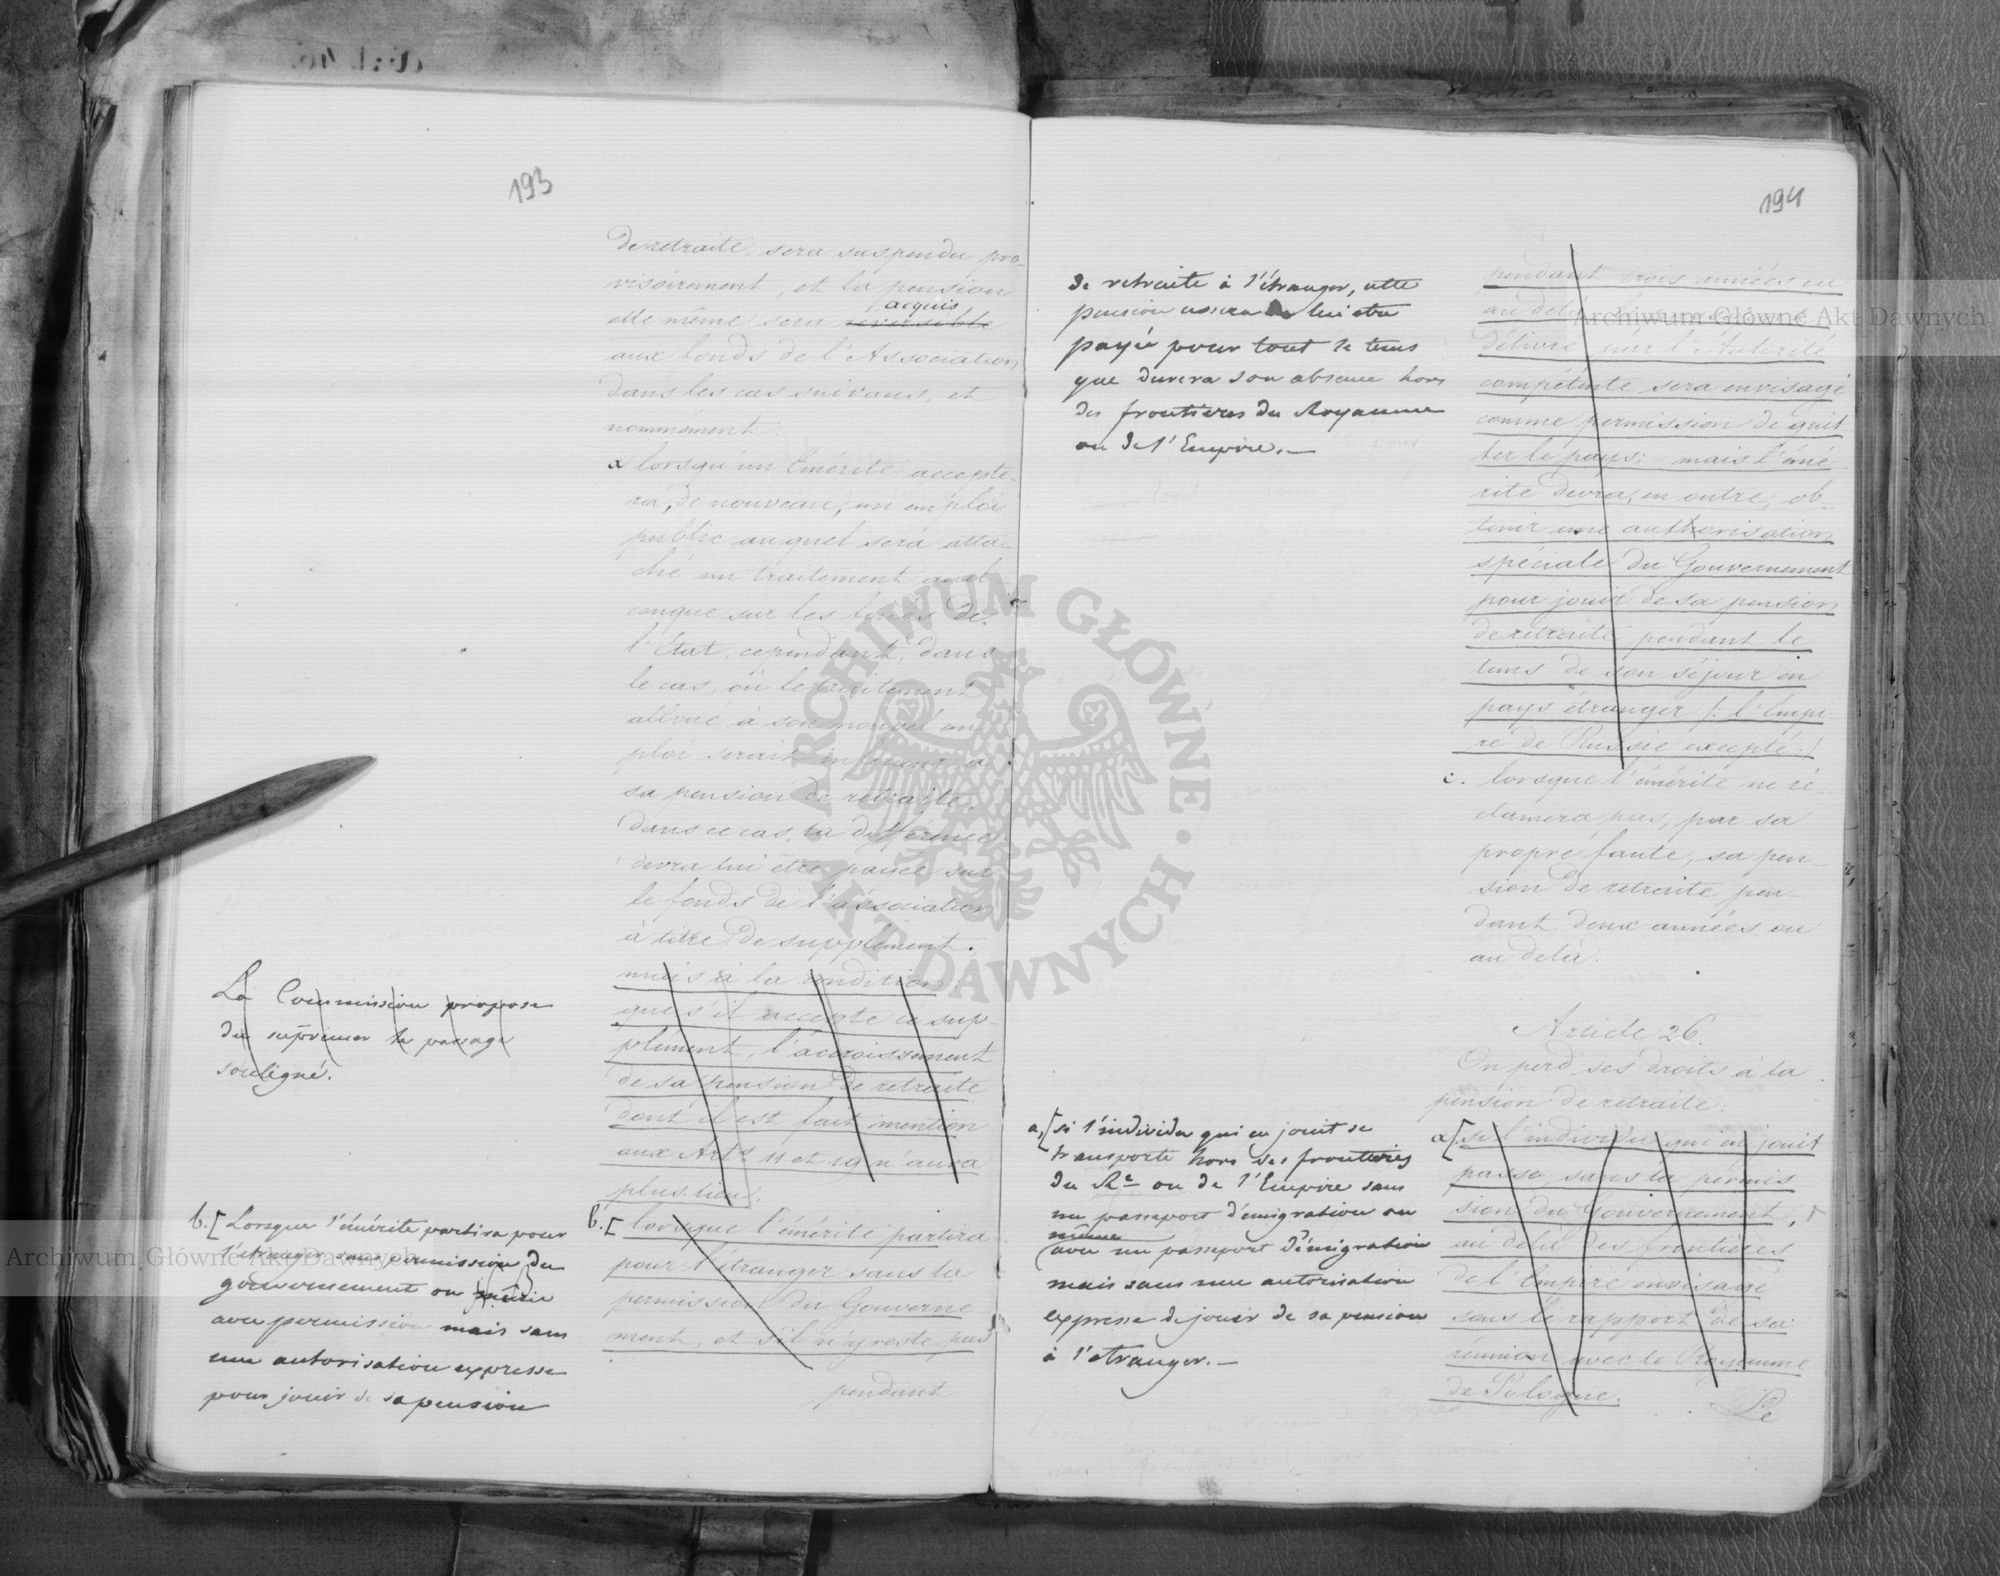 193
de retraite, sera suspendu pro-
visoirement, et la pension
acquis
elle même sera reversible
aux fonds de l'Association
dans les cas suivans, et
nommément:
a lorsqu'un Emérite accepte-
ra, de nouveau, un emploi
public auquel sera atta-
ché un traitement quel-
conque sur les fonds de
l'Etat, cependant, dans
le cas, où le traitement
alloué à son nouvel em-
ploi serait inférieur à
sa pension de retraite,
dans ce cas, la différence
devra lui être payée sur
le fonds de l'association
à titre de supplément.
mais à la condition:
que s'il accepte ce sup-
plément, l'accroissement
de sa pension de retraite
dont il est fait mention
aux Arts 11 et 19 n'aura
plus lieu.
b. [lorsque l'émérite partira
pour l'étranger sans la
permission du Gouverne-
ment, et s'il n'y reste pas
pendant
La Commission propose
de suprimer le passage
souligné.
b. [Lorsque l'émérite partira pour
l'étranger sans permission du
gouvernement ou
avec permission mais sans
une autorisation expresse
pour jouir de sa pension
194
de retraite à l'étranger, cette
pension cessera lui être
payée pour tout le tems
que durera son absence hors
des frontières du Royaume
ou de l'Empire.—
a, [si l'individu qui en jouit se
transporte hors des frontières
du Re ou de l'Empire sans
un passeport d'émigration ou
même
avec un passeport d'émigration
mais sans une autorisation
expresse de jouir de sa pension
à l'etranger.—
pendant trois années ou
au delà
délivré par l'Autorité
compétente sera envisagé
comme permission de quit-
ter le pays; mais l'émé-
rite devra, en outre, ob-
tenir une authorisation
spéciale du Gouvernement
pour jouir de sa pension
de retraite pendant le
tems de son séjour en
pays étranger /: l'Empi-
re de Russie excepté :/
c. lorsque l'émérite ne ré-
clamera pas, par sa
propre faute, sa pen-
sion de retraite pen-
dant deux années ou
au delà.
Article 26.
On perd ses droits à la
pension de retraite:
a [si l'individu qui en jouit
passe, sans la permis-
sion du Gouvernement,
au delà des frontières
de l'Empire envisagé
sous le rapport de sa
réunion avec le Royaume
de Pologne.
Le
Archiwum Główne Akt Dawnych
Archiwum Główne Akt Dawnych
ARCHIWUM GŁÓWNE · AKT DAWNYCH ·